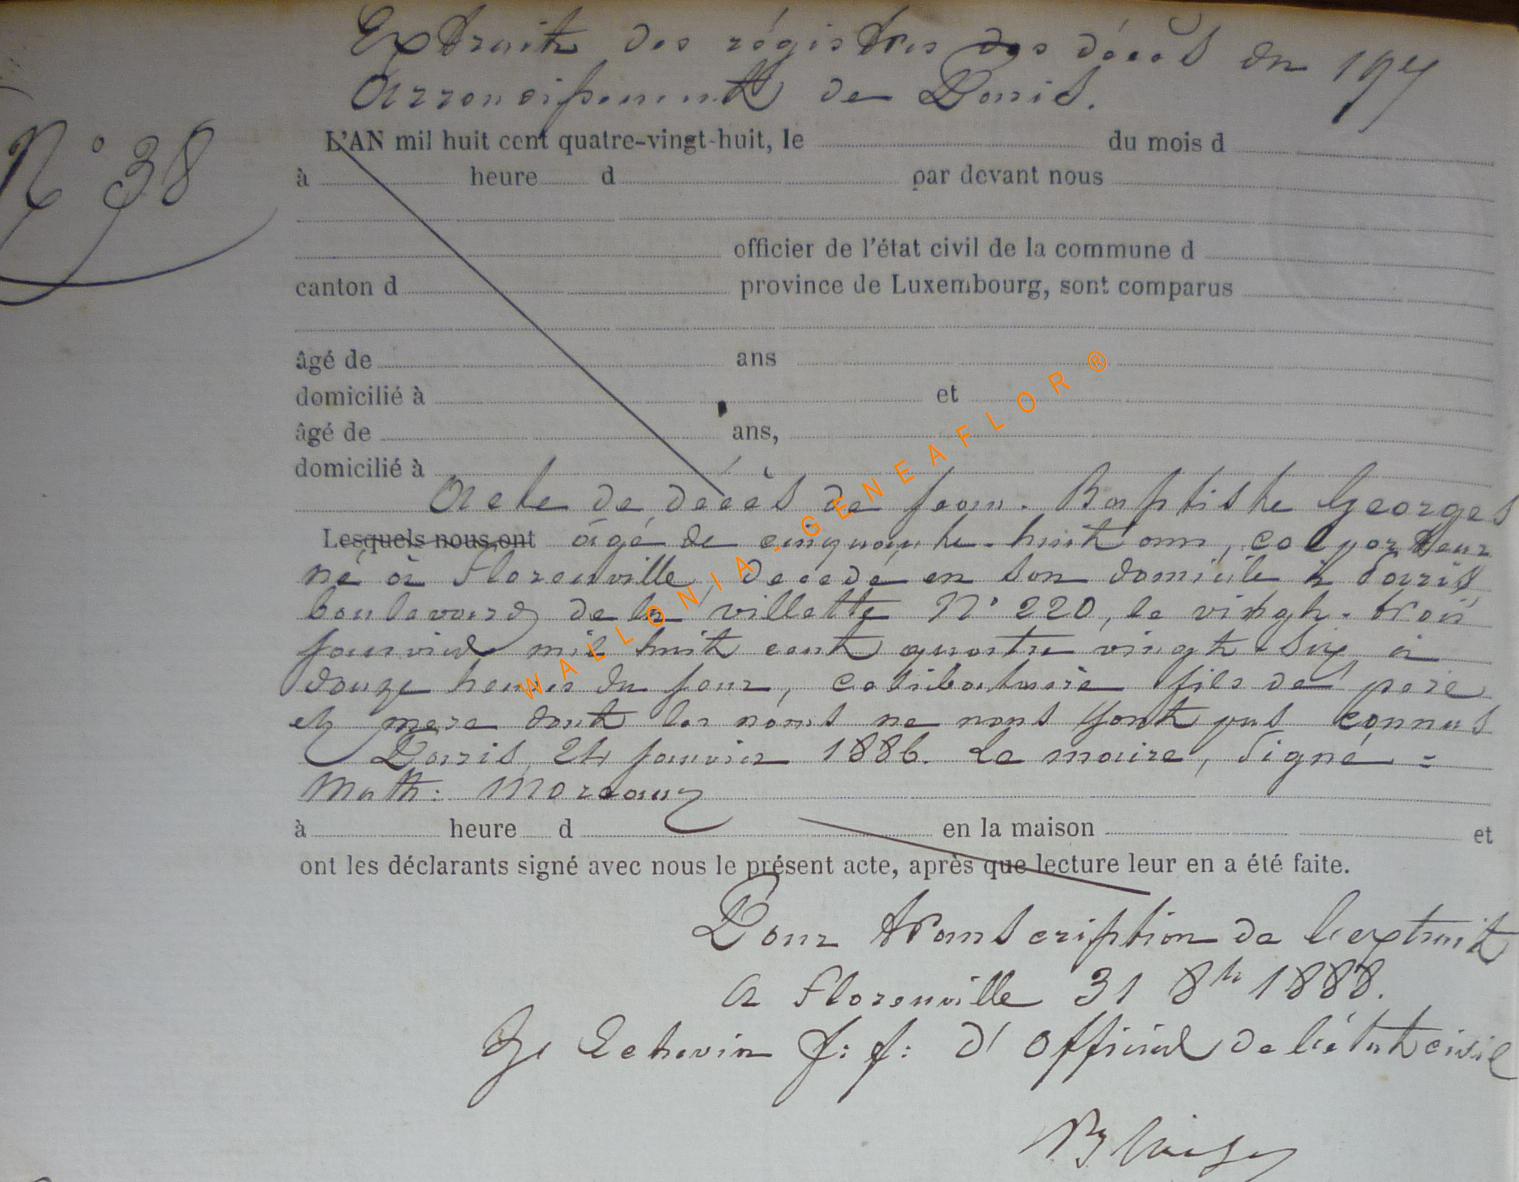 Extrait des régistres des décès du 19e
Arrondissement de Paris.
N° 38
L'AN mil huit cent quatre-vingt-huit, le du mois d
à heure d par devant nous
officier de l'état civil de la commune d
canton d province de Luxembourg, sont comparus
âgé de ans
domicilié à et
âgé de ans,
domicilié à
Acte de décès de Jean-Baptiste Georges
Lesquels nous ont âgé de cinquante-huit ans, colporteur
né à Florenville, décédé en son domicile à Paris
boulevard de la villette N° 220, le vingt-trois
janvier mil huit cent quatre vingt six à
douze heures du jour, célibataire fils de père
et mère dont les noms ne nous sont pas connus
Paris, 24 janvier 1886. Le maire, signé =
Math: Moreaux
à heure d en la maison et
ont les déclarants signé avec nous le présent acte, après que lecture leur en a été faite.
Pour transcription de l'extrait
A Florenville 31 8bre 1888.
L'Echevin f: f: d'officier de l'état civil
WALLONIA-GENEAFLOR®